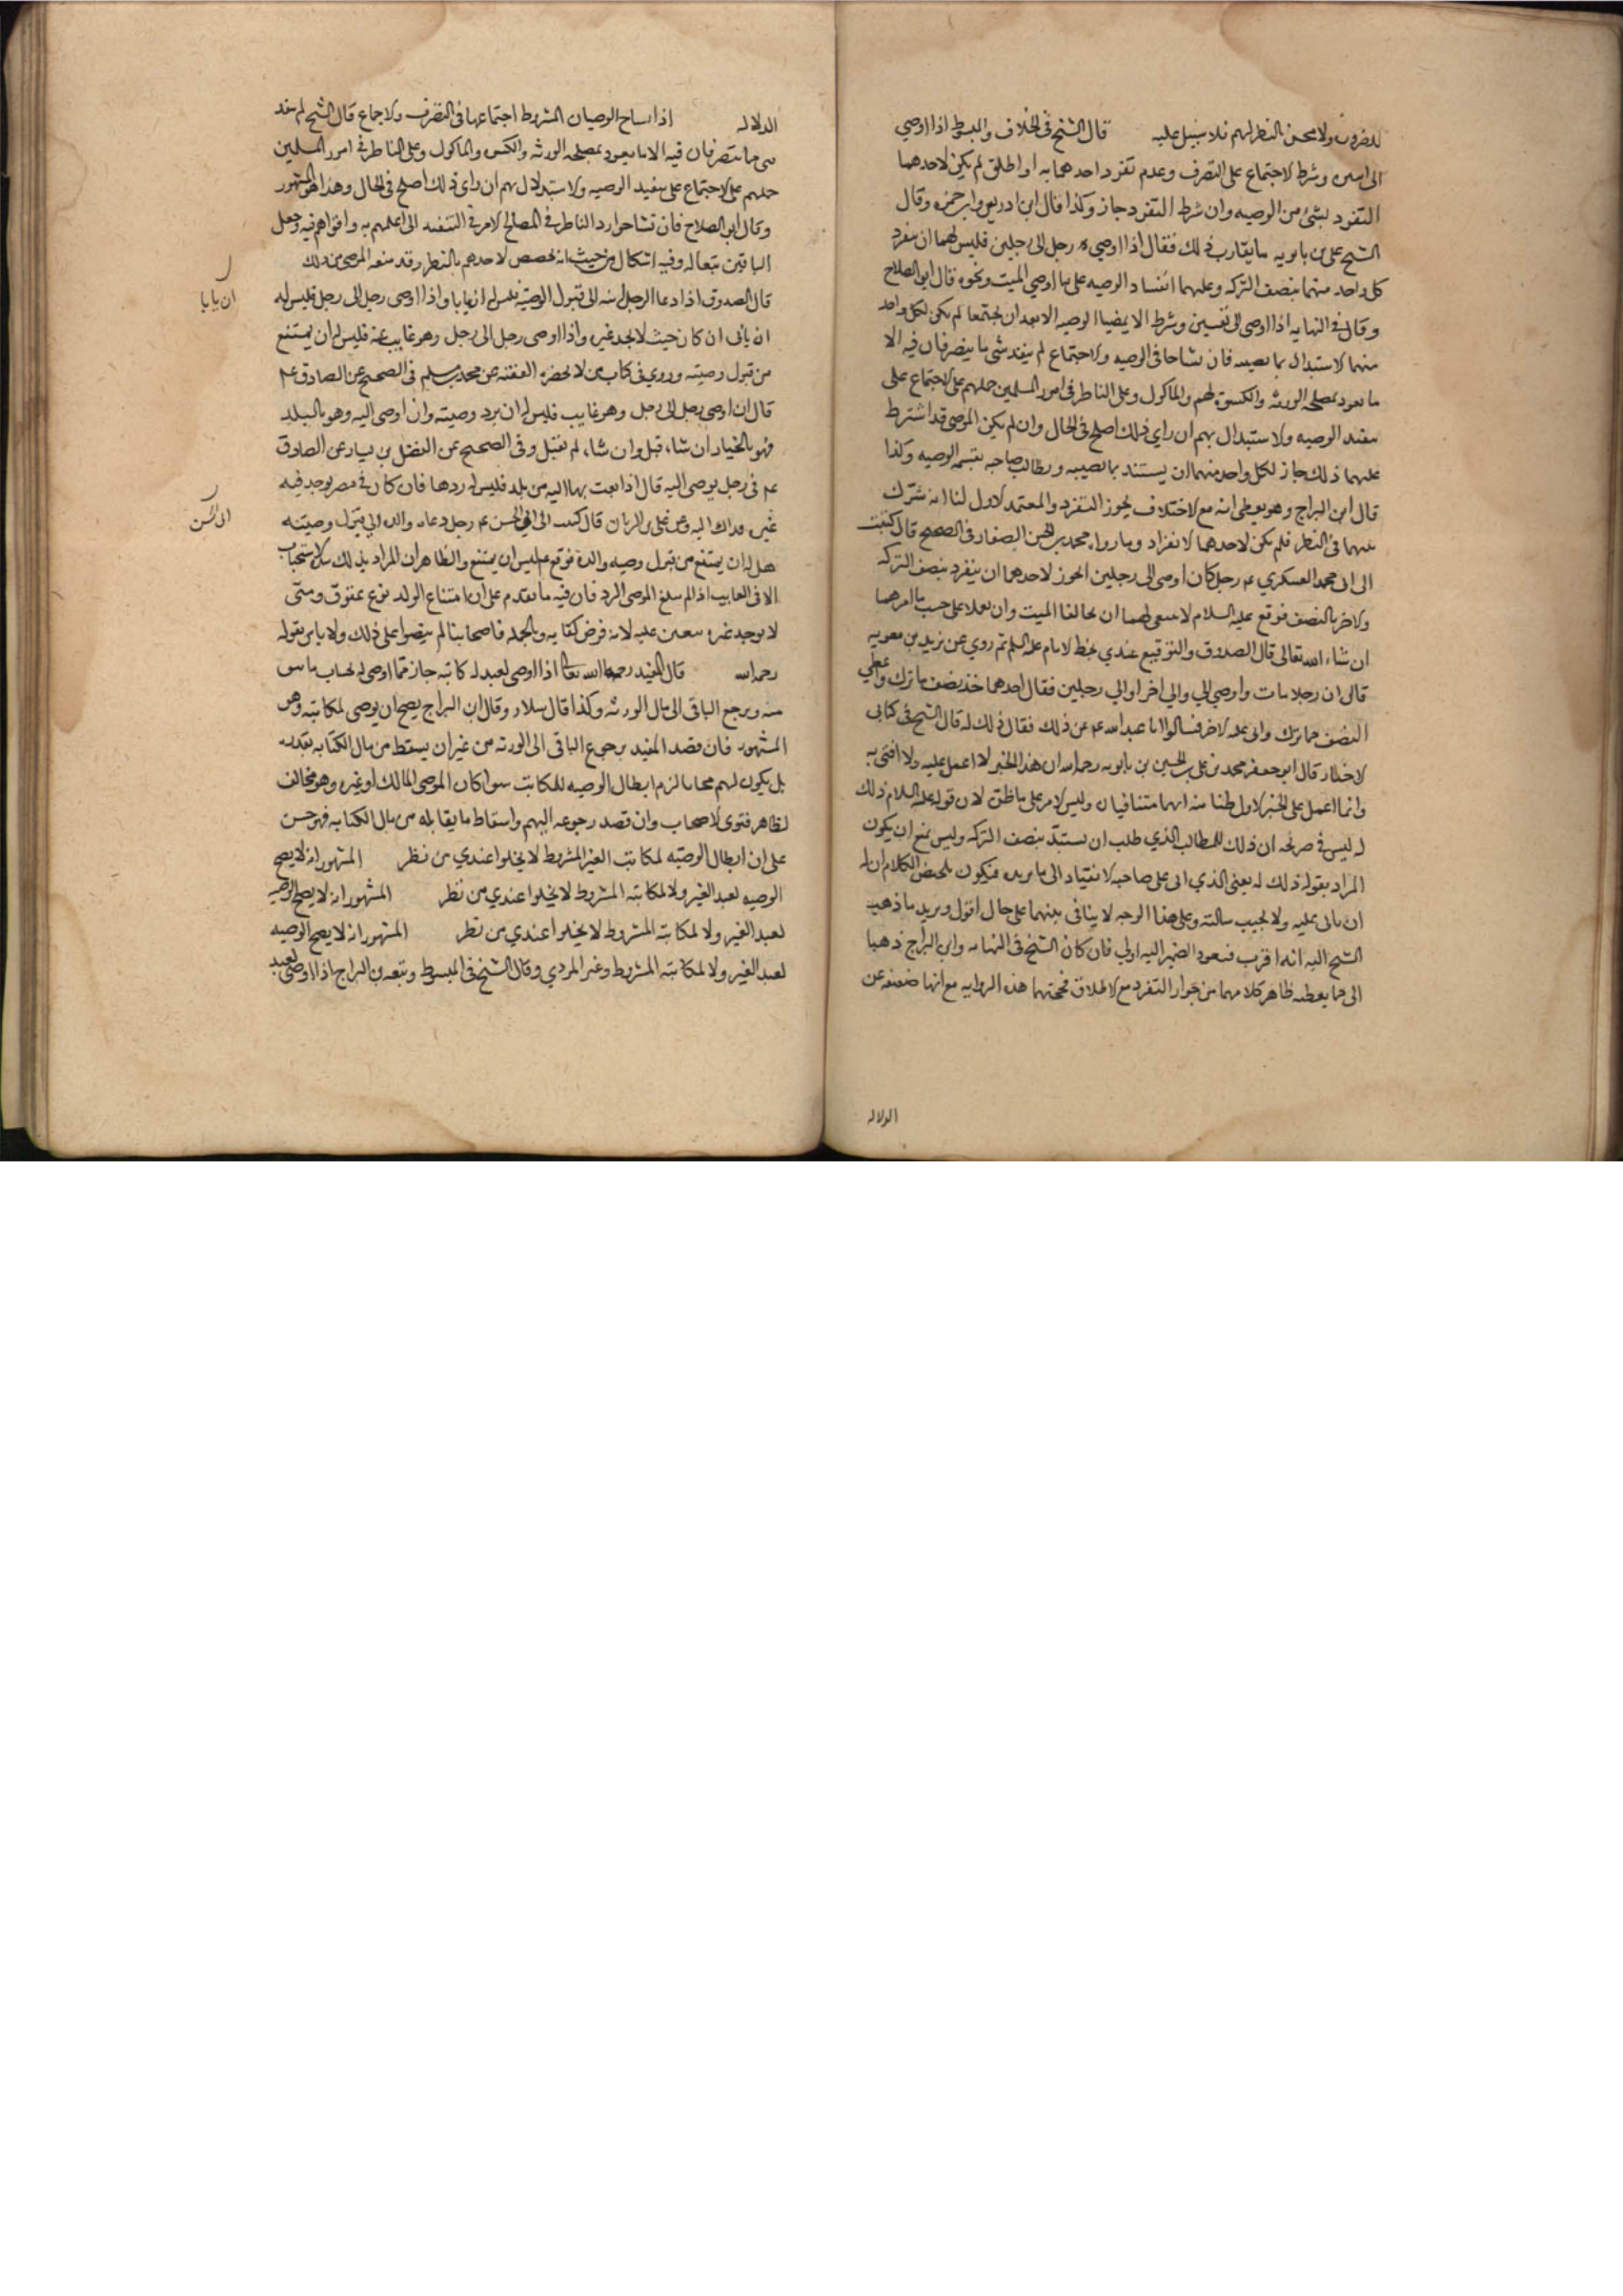 للضرورة ولا يحسن النظر لهم فلا سبيل عليه قال الشيخ في الخلاف والمبسوط اذا اوصي
الى اسين وشرط الاجتماع على التصرف وعدم تفرد احدهما به او اطلق لم يكن لاحدهما
التفرد بشئ من الوصيه وان شرط التفرد جاز وكذا قال ابن ادريس وابن حمزه وقال
الشيخ على بن بابويه ما يقارب ذلك فقال اذا اوصي رجل الى رجلين فليس لهما ان ينفرد
كل واحد منهما بنصف التركه وعليهما انفاد الوصيه على ما اوصي الميت ونحوه قال ابو الصلاح
وقال في النهايه اذا اوصى الى نفسين وشرط الا يمضيا الوصيه الا بعد ان يجتمعا لم يكن لكل واحد
منهما الاستبدال بما يصيبه فان تشاحا في الوصيه والاجتماع لم ينفد شى مما يتصرفان فيه الا
ما يعود بمصلحه الورثه والكسوة لهم والماكول وعلى الناظر في امور المسلمين حملهم على الاجتماع على
تنفيذ الوصيه والاستبدال بهم ان راي ذلك اصلح في الحال وان لم يكن الموصى قد اشترط
عليهما ذلك جاز لكل واحد منهما ان يستبد بما يصيبه ويطالب صاحبه بقسمه الوصيه وكذا
قال ابن البراج وهو يعطى انه مع الاختلاف يجوز التفرد والمعتمد الاول لنا انه شرك
بينهما في النظر فلم يكن لاحدهما الانفراد وما رواه محمد بن الحسن الصفار في الصحيح قال كتبت
الى ابى محمد العسكري ع رجل كان اوصى الى رجلين ايجوز لاحدهما ان ينفرد بنصف التركه
والاخر بالنصف فوقع عليه السلام لا ينبغى لهما ان يخالفا الميت وان يعملا على حسب ما امرهما
ان شاء الله تعالى قال الصدوق والتوقيع عندي بخط الامام عليه السلام ثم روي عن بريد بن معويه
قال ان رجلا مات واوصي الي والي اخر او الي رجلين فقال احدهما خذ نصف ما ترك واعطي
النصف مما ترك وابى عليه الاخر فسالوا ابا عبد الله ع عن ذلك فقال ذلك له قال الشيخ في كتابى
الاخبار قال ابو جعفر محمد بن على بن الحسين بن بابويه رحمه الله ان هذا الخبر لا اعمل عليه ولا افتى به
وانما اعمل على الخبر الاول ظنا منه انهما متنافيان وليس الامر على ما ظن لان قوله عليه السلام ذلك
له ليس في صريحه ان ذلك للمطالب الذي طلب ان يستبد بنصف التركه وليس يمنع ان يكون
المراد بقوله ذلك له يعنى الذي ابى على صاحبه الانقياد الى ما يريده فيكون تلخيص الكلام ان له
ان يابى عليه ولا يجيب مسالته وعلى هذا الوجه لا ينافى بينهما على حال اقول ويريد ما ذهب
الشيخ اليه انه اقرب فيعود الضمير اليه اولى فان كان الشيخ في النهايه وابن البراج ذهبا
الى ما يعطيه ظاهر كلامهما من جواز التفرد مع الاطلاق فحجتهما هذه الروايه مع انها ضعيفه عن
الدلاله
الدلاله اذا تشاح الوصيان المشروط اجتماعهما في التصرف والاجماع قال الشيخ لم ينفد
شى مما يتصرفان فيه الا ما يعود بمصلحه الورثه والكسوه والماكول وعلى الناظر في امور المسلمين
حملهم على الاجتماع على تنفيذ الوصيه والاستبدال بهم ان راى ذلك اصلح في الحال وهذا هو المشهور
وقال ابو الصلاح فان تشاحوا رد الناظر في المصالح الامر في التنفيذ الى اعلمهم به واقواهم فيه وجعل
الباقين تبعا له وفيه اشكال من حيث انه تخصص لاحدهم بالنظر وقد منعه الموصى من ذلك
قال الصدوق اذا دعا الرجل ابنه الى قبول الوصيه فليس له ان يابا واذا اوصى رجل الى رجل فليس له
ان يابى ان كان حيث لا يجد غيره واذا اوصى رجل الى رجل وهو غايب عنه فليس له ان يمتنع
من قبول وصيته وروي في كتاب من لا يحضره الفقيه عن محمد بن مسلم في الصحيح عن الصادق ع
قال ان اوصى رجل الى رجل وهو غايب فليس له ان يرد وصيته وان اوصى اليه وهو بالبلد
فهو بالخيار ان شاء قبل وان شاء لم يقبل وفي الصحيح عن الفضيل بن يسار عن الصادق
ع في رجل يوصى اليه قال اذا بعث بها اليه من بلد فليس له ردها فان كان في مصر يوجد فيه
غيره فذاك اليه وعن على بن الريان قال كتبت الى ابي الحسن ع رجل دعاه والده الى قبول وصيته
هل له ان يمتنع من قبول وصيه والده فوقع ع ليس له ان يمتنع والظاهر ان المراد بذلك كله الاستحباب
الا في الغايب اذا لم يبلغ الموصى الرد فان فيه ما تقدم على ان امتناع الولد نوع عقوق ومتى
لا يوجد غيره يتعين عليه لانه فرض كفايه وبالجمله فاصحابنا لم ينصوا على ذلك ولا باس بقوله
رحمه الله قال المفيد رحمه الله تعالى اذا اوصى لعبد له كاتبه جاز مما اوصى له بحساب ما
منه ويرجع الباقى الى مال الورثه وكذا قال سلار وقال ابن البراج يصح ان يوصى لمكاتبه وهو
المشهور فان قصد المفيد برجوع الباقى الى الورثه من غير ان يسقط من مال الكتابه بقدره
بل يكون لهم مجانا لزم ابطال الوصيه للمكاتب سوا كان الموصى المالك او غيره وهو مخالف
لظاهر فتوى الاصحاب وان قصد رجوعه اليهم واسقاط ما يقابله من مال الكتابه فهو حسن
على ان ابطال الوصيه لمكاتب الغير المشروط لا يخلوا عندي من نظر المشهور انه لا يصح
الوصيه لعبد الغير ولا لمكاتبه المشروط لا يخلوا عندي من نظر المشهور انه لا يصح الوصيه
لعبد الغير ولا لمكاتبه المشروط لا يخلوا عندي من نظر المشهور انه لا يصح الوصيه
لعبد الغير ولا لمكاتبه المشروط وغير المودي وقال الشيخ في المبسوط وتبعه بن البراج اذا اوصى لعبد
ان يابا
ابى الحسن